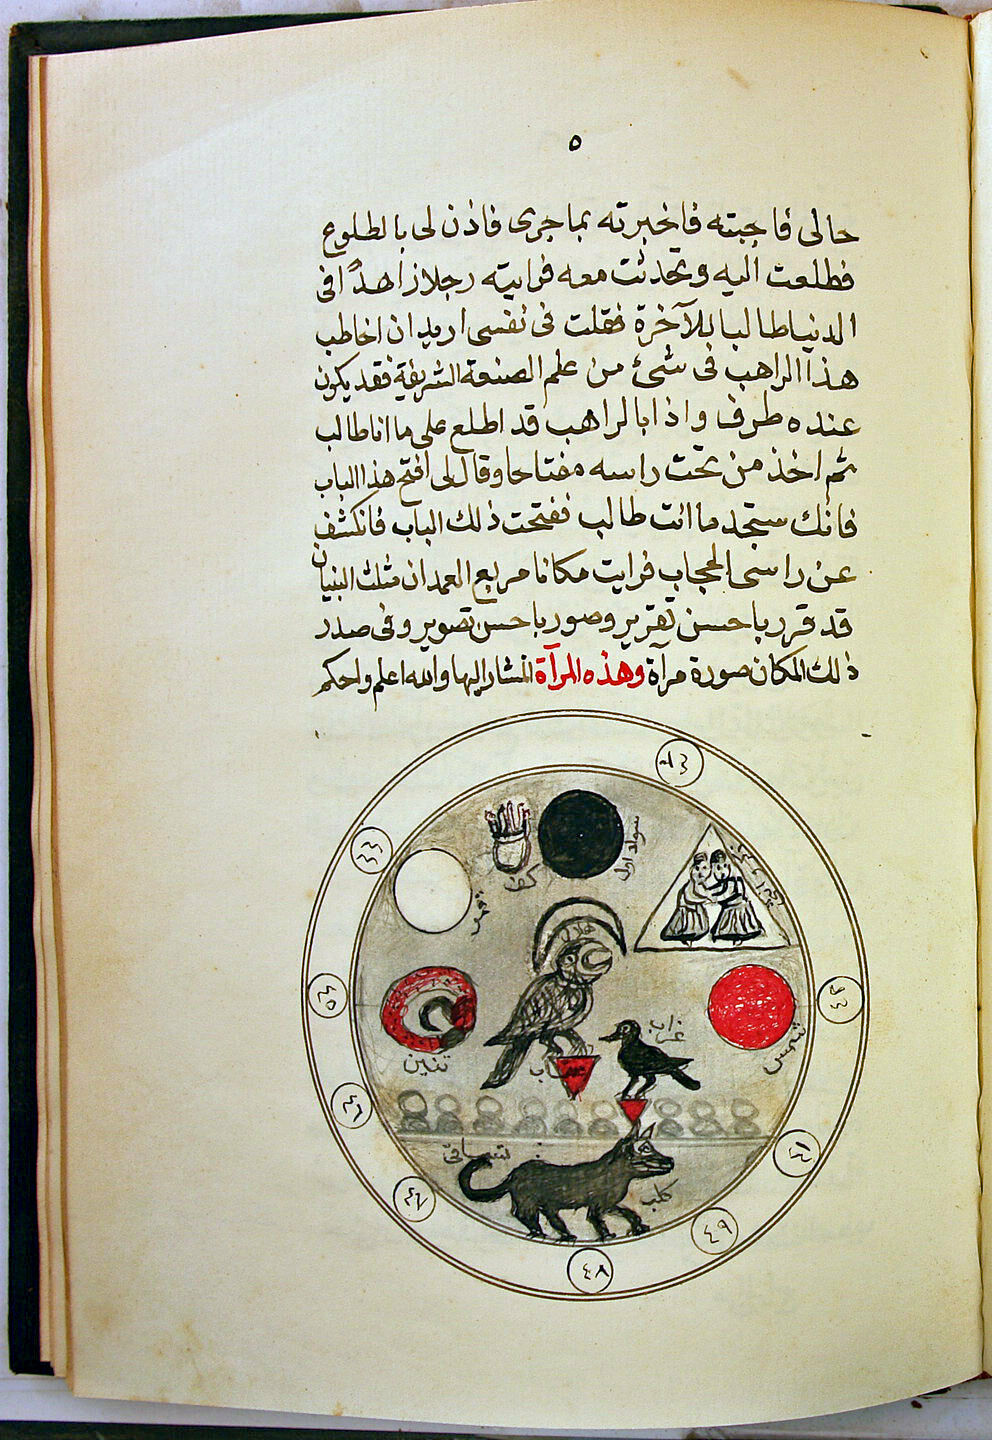 ٥
حالى فاجبته فاخبرته بما جرى فاذن لى بالطلوع
فطلعت اليه وتحدثت معه فرايته رجلا زاهدًا فى
الدنيا طالبا للآخرة فقلت فى نفسى اريد ان اخاطب
هذا الراهب فى شئ من علم الصنعة الشريفة فقد يكون
عنده طرف واذا بالراهب قد اطلع على ما انا طالب
ثم اخذ من تحت راسه مفتاحا وقال لى افتح هذا الباب
فانك ستجد ما انت طالب ففتحت ذلك الباب فانكشف
عن راسى الحجاب فرايت مكانا مربع العمدان مثلث البنيان
قد قرر باحسن تقرير وصور باحسن تصوير وفى صدر
ذلك المكان صورة مرآة وهذه المرآة المشار اليها والله اعلم واحكم
كف
سواد اول
هلال
غراب
شمس
تنين
عقاب
كلب
٤٥
٤٦
٤٧
٤٨
٤٩